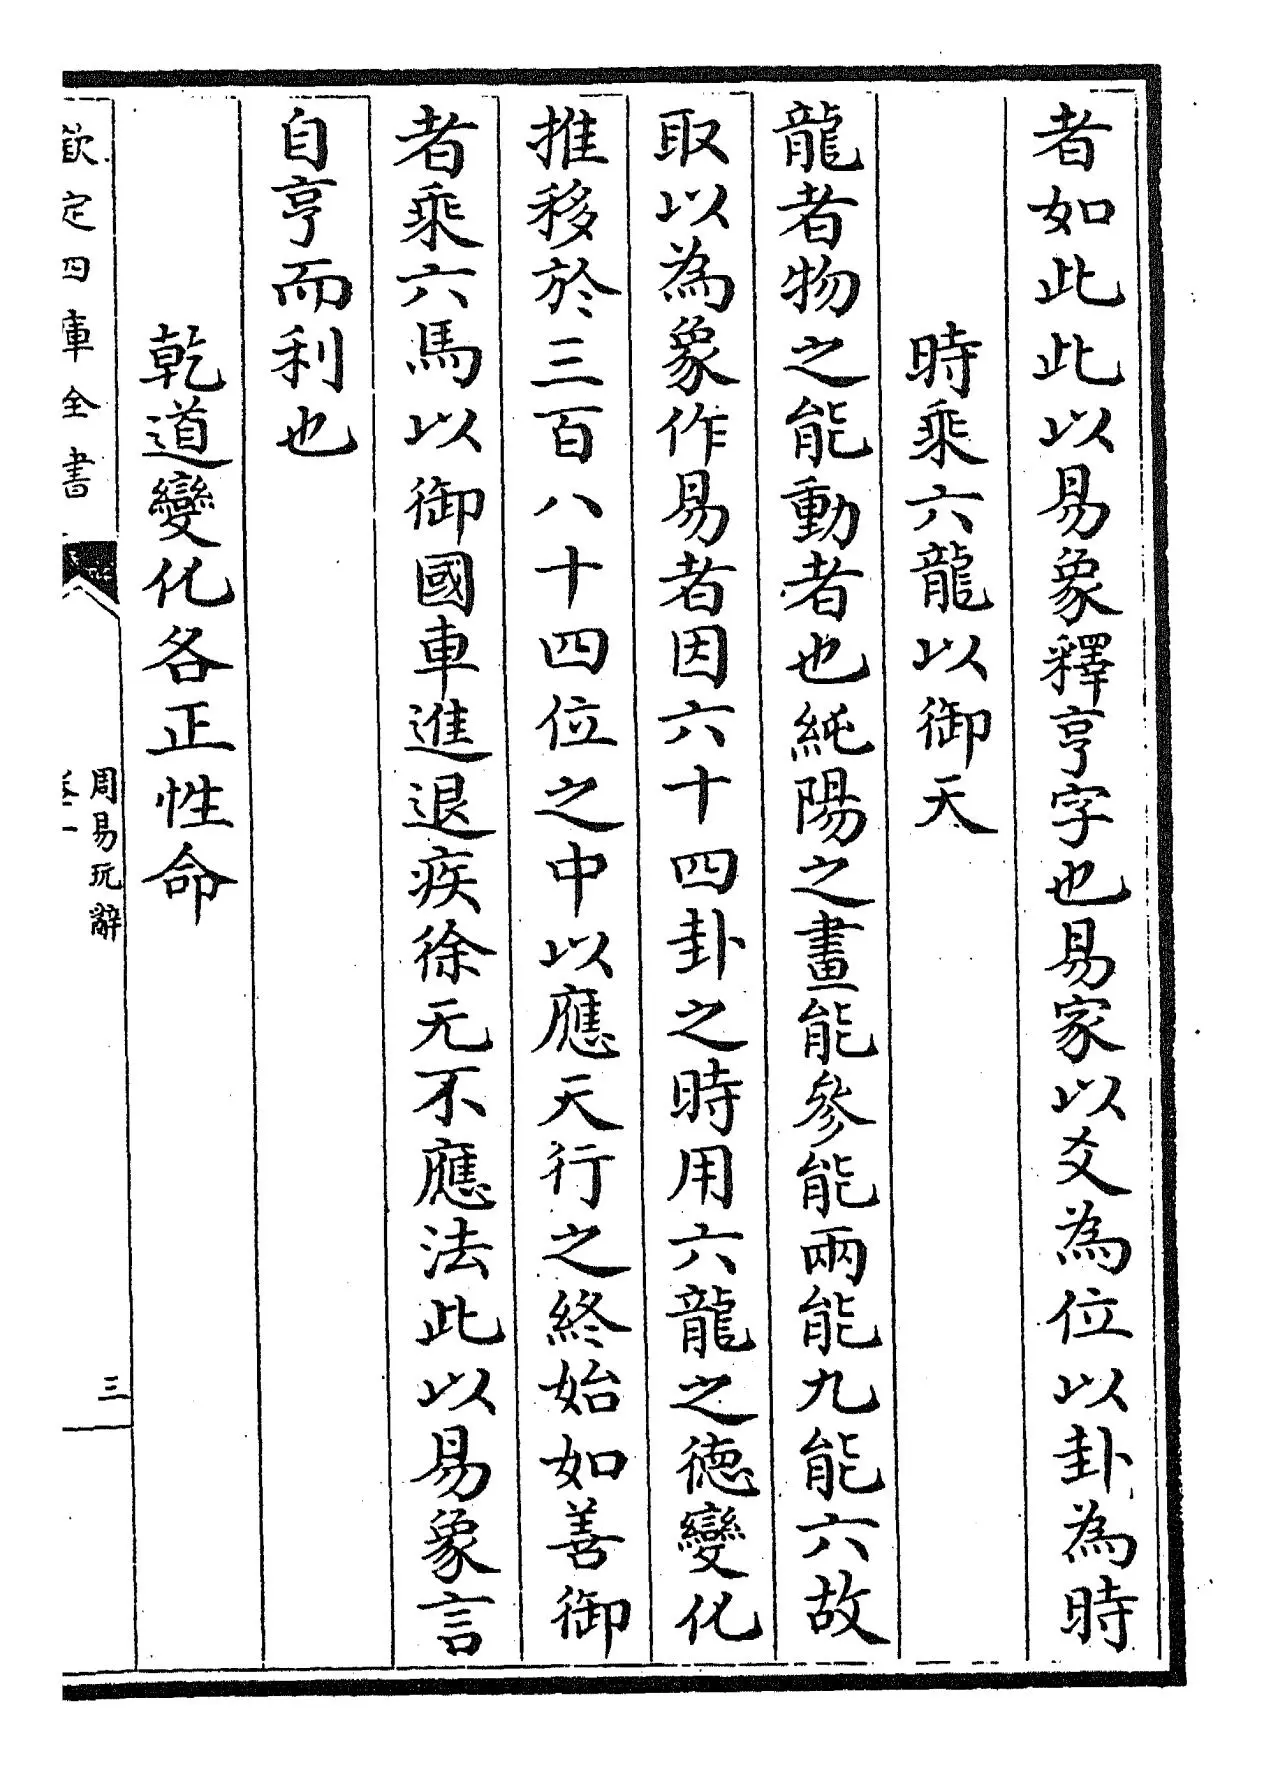 者如此此以易象釋亨字也易家以爻為位以卦為時
時乘六龍以御天
龍者物之能動者也純陽之畫能參能兩能九能六故
取以為象作易者因六十四卦之時用六龍之德變化
推移於三百八十四位之中以應天行之終始如善御
者乘六馬以御國車進退疾徐无不應法此以易象言
自亨而利也
乾道變化各正性命
欽定四庫全書
周易玩辭
卷一
三